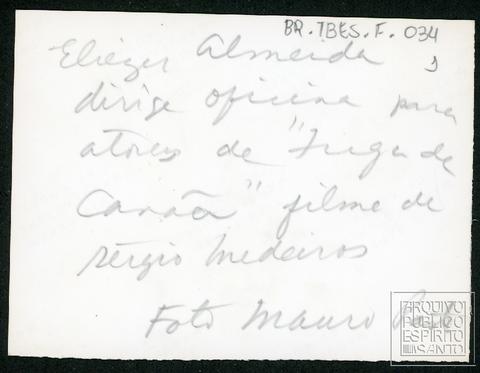 BR.TBES.F. 034
Eliezer Almeida
dirige oficina para
atores de "Fuga de
Canaã" filme de
Sérgio Medeiros
Foto Mauro
ARQUIVO
PÚBLICO
ESPÍRITO
SANTO